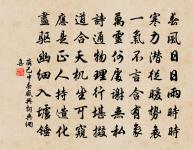 春風日日雨時時
寒力潛從暖勢衰
一氣不言含有象
萬靈何處謝無私
詩通物理行堪掇
道合天機坐可窺
應是正人持造化
盡驅幽細入爐錘